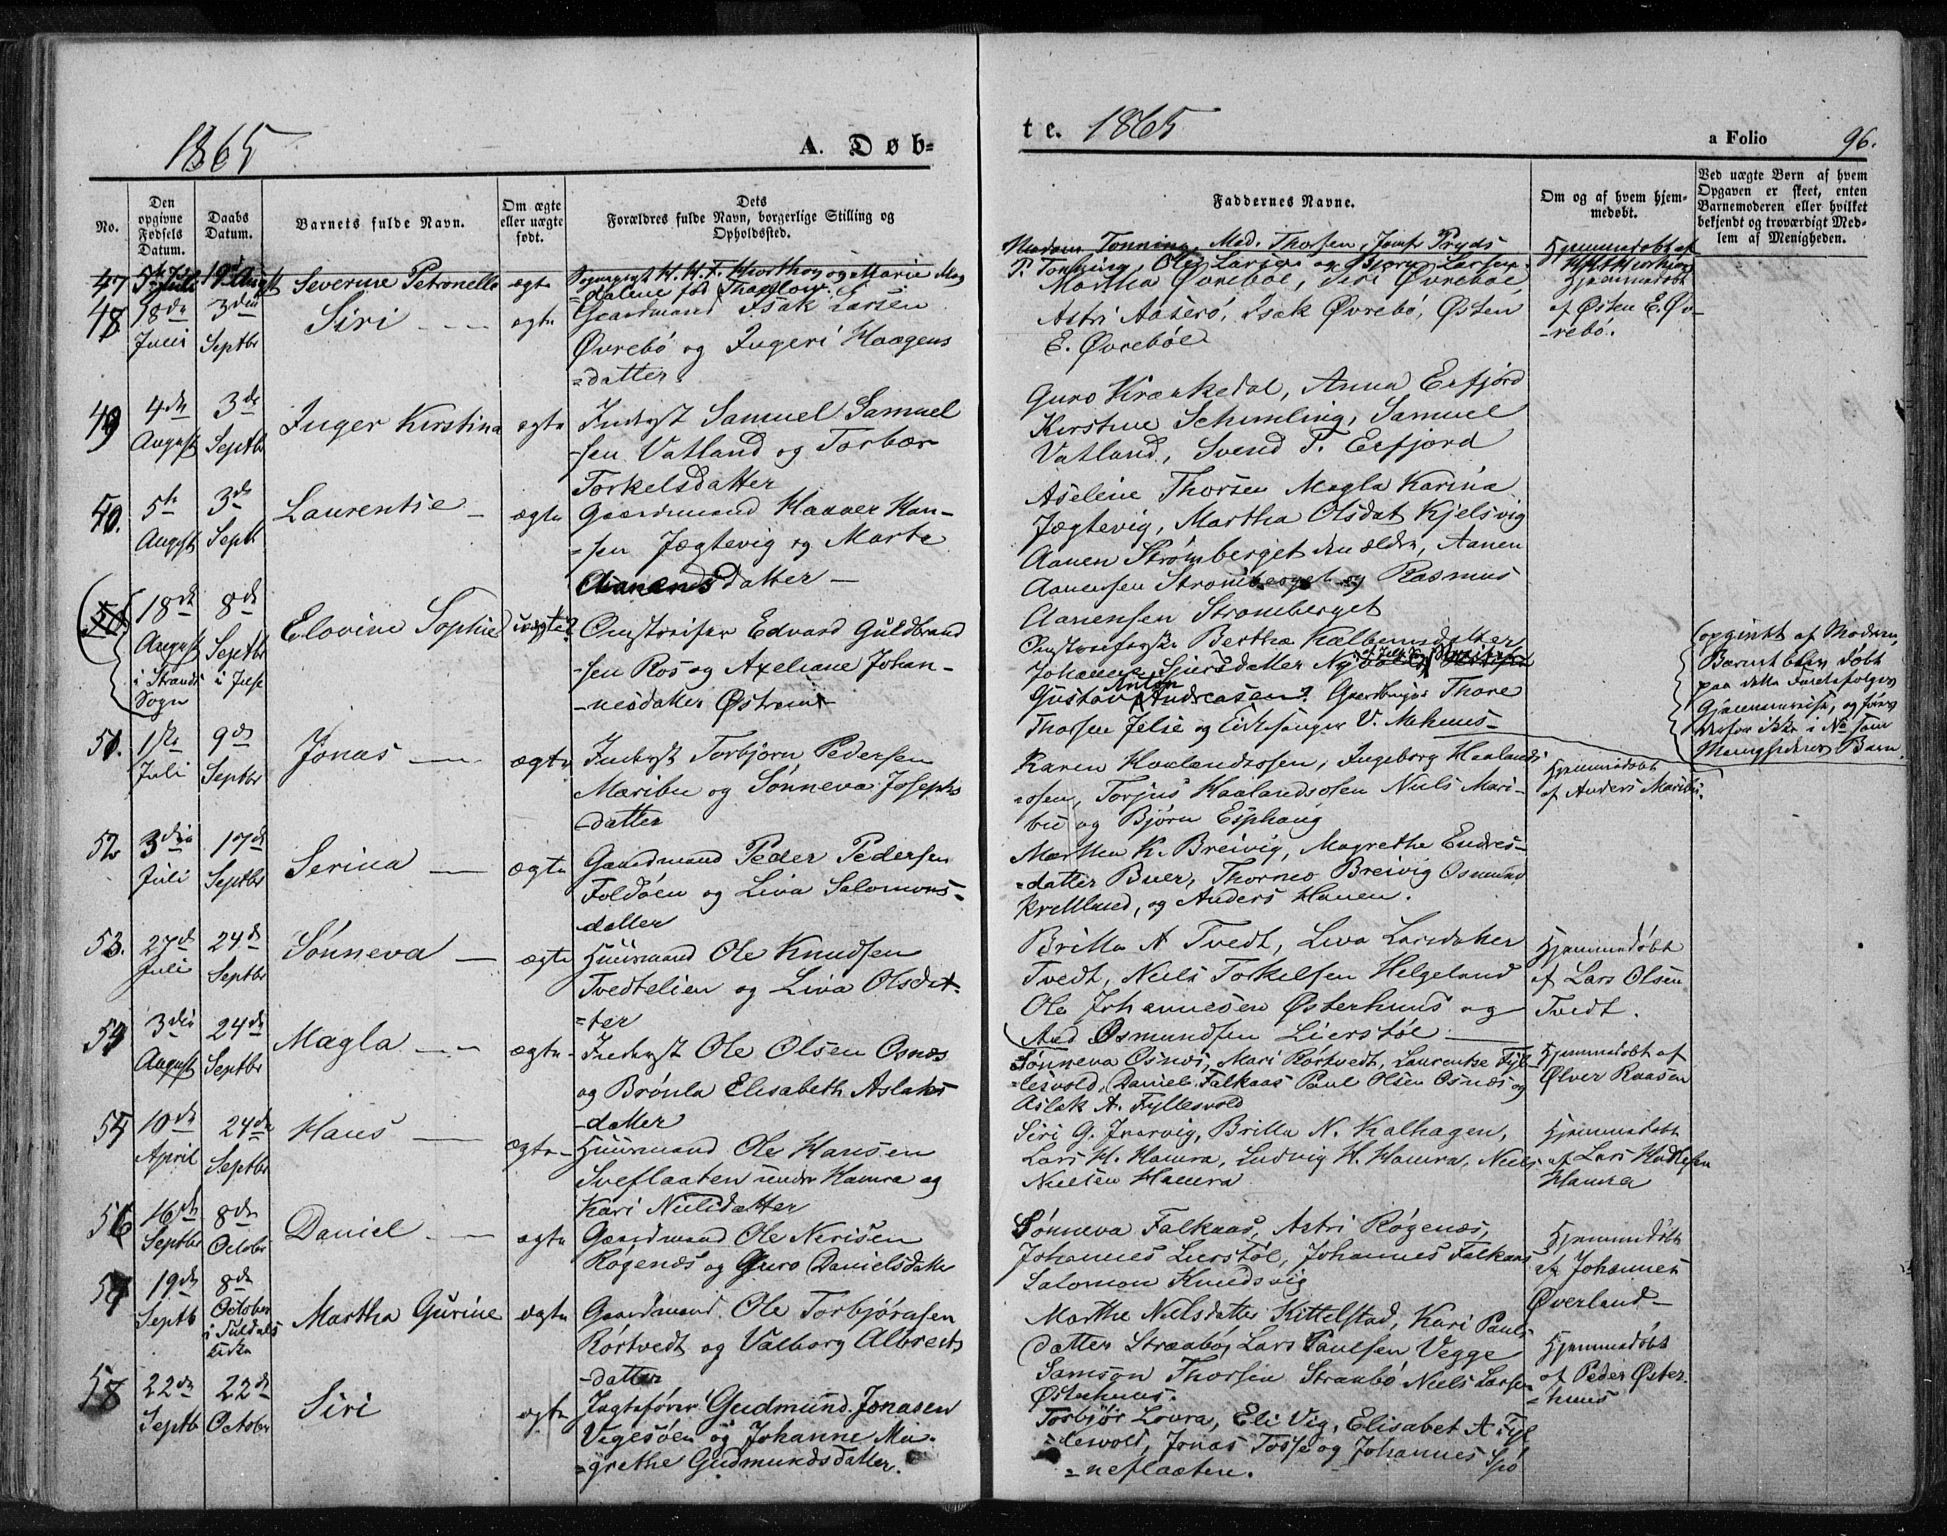 1865
A. Døb=
te. 1865
a Folio 96.
No.
Den opgivne Fødsels Datum.
Daabs Datum.
Barnets fulde Navn.
Om ægte eller uægte født.
Dets Forældres fulde Navn, borgerlige Stilling og Opholdssted.
Faddernes Navne.
Om og af hvem hjemmedøbt.
Ved uægte Børn af hvem Opgaven er skeet, enten Barnemoderen eller hvilket bekjendt og troværdigt Medlem af Menigheden.
47 5te Juli 19de Augst Severine Petronelle ægte
og Marie Mag
=dalene fød Thaulow
Madam Tonning, Mad. Thorsen, Jomfr Pryds
P. Tonning, Ole Larsen og Larsen
Hjemmedøbt af
48 18de Juli 3die Septbr Siri — ægte
Gaardmand Isak Larsen
Øvrebö og Ingeri Haagens
=datter
Martha Övreböe, Siri Øvreböe
Astri Aaserö, Isak Øvrebö, Østen
E. Øvreböe
Hjemmedøbt
af Østen E. Øv-
-rebö.
49 4de August 3de Septbr Inger Kirstina ægte
Inderst Samuel Samuel
-sen Vatland og Torbær
Torkelsdatter
Guro Krækedal, Anna Erfjord
Kirstine Schimling, Samuel
Vatland, Svend T. Erfjord
40. 5te Augst 3de Septb Laurentse — ægte
Gaardmand Haaver Han-
-sen Jægtevig og Marte
Aanensdatter —
Aselene Thorsen Magla Karina
Jægtevig, Martha Olsdat Kjelsvig
Aanen Strømberget den ældre, Aanen
Aanensen Stromberget og Rasmus
Aanensen Stromberget
18de August i Strands Sogn 8de Septbr i Jelse Elovine Sophie uægte?
Omstreifer Edvard Guldbrand
-sen Ros og Axeliane Johan-
-nesdatter Østrem
Omstreiferske Bertha Kalbensdatter
Johanne Sjursdatter
Gustav Anton Andreasen? Gaardbruger Thore
Thorsen Jelse og Kirkesanger V. Mehus—
opgivet af Moderen,
Barnet blev døbt
paa dette
Gjennemreise, og føres
derfor ikke i No som
Menighedens Barn
51. 1ste Juli 9de Septbr Jonas — ægte
Inderst Torbjørn Pedersen
Maribu og Sönneva Josephs
-datter
Karen Haalandsosen, Ingeborg Haalands
=osen, Torjus Haalandsosen Niels Mari-
bu og Björn Esphaug
Hjemmedøbt
af Anders Maribu.
52 3die Juli 17de Septbr Serina — ægte
Gaardmand Peder Pedersen
Foldöen og Liva Salomons-
datter
Martha K. Breivig, Magrethe Endres-
=datter Buer, Thorneo Breivig Osmund
Kvillund, og Anders Hanen.
53. 27de Juli 24de Septbr Sönneva — ægte
Huusmand Ole Knudsen
Tvedtelien og Liva Olsdat-
=ter
Britta A Tvedt, Liva Larsdatter
Tvedt, Niels Torkelsen Helgeland
Ole Johannesen Østerhuus og
And Osmundsen Lierstøl
Hjemmedøbt
af Lars Olsen
Tvedt.
54 3die August 24de Septbr Magla — ægte
Inderst Ole Olsen Osnæs
og Brönla Elisabeth Aslaks
-datter
Sønneva Osnæs, Mari Rörtvedt, Laurentse Fyl-
=lesvold, Daniel Falkaas Paul Olsen Osnæs og
Aslak A. Fyllesvold
Hjemmedøbt af
Ølver Raasen
55 10de April 24de Septbr Hans — ægte
Huusmand Ole Hansen
Sveflaaten under Hamra og
Kari Nielsdatter
Siri G. Inarvig, Britta N. Kalhagen,
Lars H. Hamra, Ludvig H. Hamra, Niels
Nielsen Hamra
Hjemmedøbt
af Lars Hadlesen
Hamra
56 16de Septbr 8de Octobr Daniel — ægte
Gaardmand Ole Nerisen
Rögenæs og Guro Danielsdatter
Sönneva Falkaas, Astri Rögenæs,
Johannes Lierstöl, Johannes Falkaas
Salomon Knudsvig
Hjemmedøbt
af Johannes
Överland
57 19de Septb 8de October i kirke Martha Gurine ægte
Gaardmand Ole Torbjörnsen
Rörtvedt og Valborg Albreets
-datter
Marthe Nielsdatter Kittelstad, Kari Pauls
datter Straabö, Lars Paulsen Vegge
Samson Thorsen Straabö Niels Larsen
Østerhuus.
Hjemmedøbt
af Peder Øster-
=huus
58 22de Septb 22de October Siri ægte
Jagtefører Gudmund Jonasen
Vegesöen og Johanne Ma-
=grethe Gudmundsdatter.
Torbjör Lovra, Eli Vig, Elisabet A. Fyl
=lesvold, Jonas Tosse og Johannes Spö
=neflaaten.